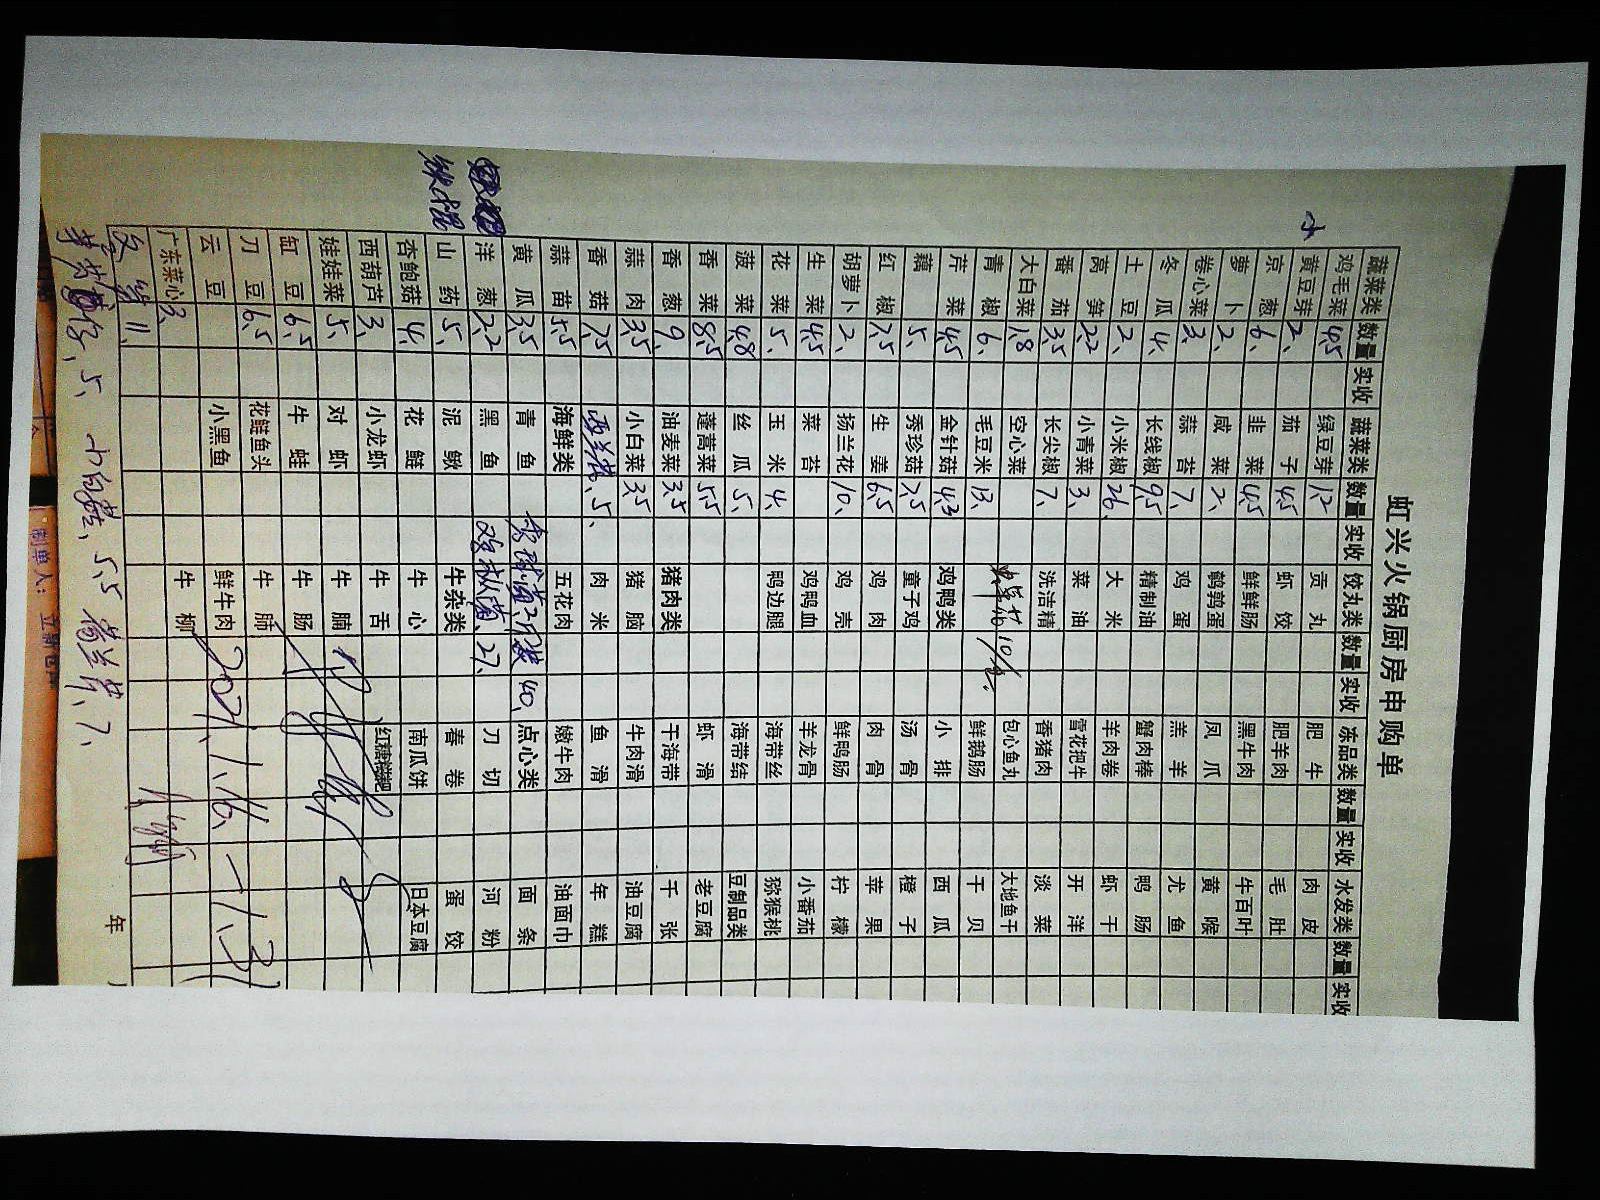 虹兴火锅厨房申购单
蔬菜类 数量 实收 蔬菜类 数量 实收 饺丸类 数量 实收 冻品类 数量 实收 水发类 数量 实收
鸡毛菜 4.5 绿豆芽 1.2 贡丸 肥牛 肉皮
黄豆芽 2、 茄子 4.5 虾饺 肥羊肉 毛肚
京葱 6、 韭菜 4.5 鲜鲜肠 黑牛肉 牛百叶
萝卜 2、 咸菜 2、 鹌鹑蛋 凤爪 黄喉
卷心菜 3、 蒜苔 7、 鸡蛋 羔羊 尤鱼
冬瓜 4、 长线椒 9.5 精制油 蟹肉棒 鸭肠
土豆 2、 小米椒 26、 大米 羊肉卷 虾干
莴笋 2.2 小青菜 3、 菜油 雪花把牛 开洋
番茄 3.5 长尖椒 7、 洗洁精 香猪肉 淡菜
大白菜 1.8 空心菜 包心鱼丸 大地鱼干
青椒 6、 毛豆米 13、 10/ 鲜鹅肠 干贝
芹菜 4.5 金针菇 4.3 鸡鸭类 小排 西瓜
藕 5、 秀珍菇 7.5 童子鸡 汤骨 橙子
红椒 7.5 生姜 6.5 鸡肉 肉骨 苹果
胡萝卜 2、 扬兰花 10、 鸡壳 鲜鸭肠 柠檬
生菜 4.5 菜苔 鸡鸭血 羊龙骨 小番茄
花菜 5、 玉米 4、 鸭边腿 海带丝 猕猴桃
菠菜 4.8 丝瓜 5、 海带结 豆制品类
香菜 8.5 蓬蒿菜 5.5 虾滑 老豆腐
香葱 9、 油麦菜 3.5 猪肉类 干海带 千张
蒜肉 3.5 小白菜 3.5 猪脑 牛肉滑 油豆腐
香菇 7.5 西兰花 5、 肉米 鱼滑 年糕
蒜苗 5.5 海鲜类 五花肉 嫩牛肉 油面巾
黄瓜 3.5 青鱼 40、 点心类 面条
洋葱 2.2 黑鱼 鸡枞菌 27、 刀切 河粉
山药 5、 泥鳅 牛杂类 春卷 蛋饺
杏鲍菇 4、 花鲢 牛心 南瓜饼 日本豆腐
西葫芦 3、 小龙虾 牛舌 红糖糍粑
娃娃菜 5、 对虾 牛脯
缸豆 6.5 牛蛙 牛肠
刀豆 6.5 花鲢鱼头 牛肺
云豆 小黑鱼 鲜牛肉 2021.1.16.—1.31
广东菜心 3、 牛柳
冬笋 11、 年
5、 5.5 7、
制单人：